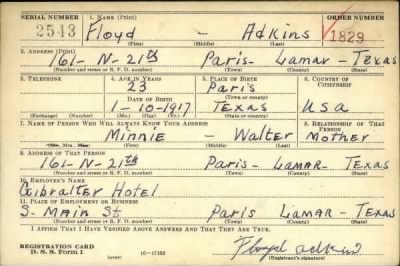 SERIAL NUMBER 1. NAME (Print) ORDER NUMBER
2543 Floyd - Adkins 1829
(First) (Middle) (Last)
2. ADDRESS (Print)
161-N-21th Paris- Lamar- Texas
(Number and street or R. F. D. number) (Town) (County) (State)
3. TELEPHONE 4. AGE IN YEARS 5. PLACE OF BIRTH 6. COUNTRY OF CITIZENSHIP
23 Paris
DATE OF BIRTH (Town or county)
1-10-1917 Texas USA
(Exchange) (Number) (Mo.) (Day) (Yr.) (State or country)
7. NAME OF PERSON WHO WILL ALWAYS KNOW YOUR ADDRESS 8. RELATIONSHIP OF THAT PERSON
Minnie - Walter Mother
(Mr., Mrs., Miss) (First) (Middle) (Last)
9. ADDRESS OF THAT PERSON
161-N-21th Paris- Lamar- Texas
(Number and street or R. F. D. number) (Town) (County) (State)
10. EMPLOYER'S NAME
Gibralter Hotel
11. PLACE OF EMPLOYMENT OR BUSINESS
S. Main St. Paris Lamar- Texas
(Number and street or R. F. D. number) (Town) (County) (State)
I AFFIRM THAT I HAVE VERIFIED ABOVE ANSWERS AND THAT THEY ARE TRUE.
REGISTRATION CARD
D. S. S. Form 1 (over) 16-17105 Floyd adkins
(Registrant's signature)